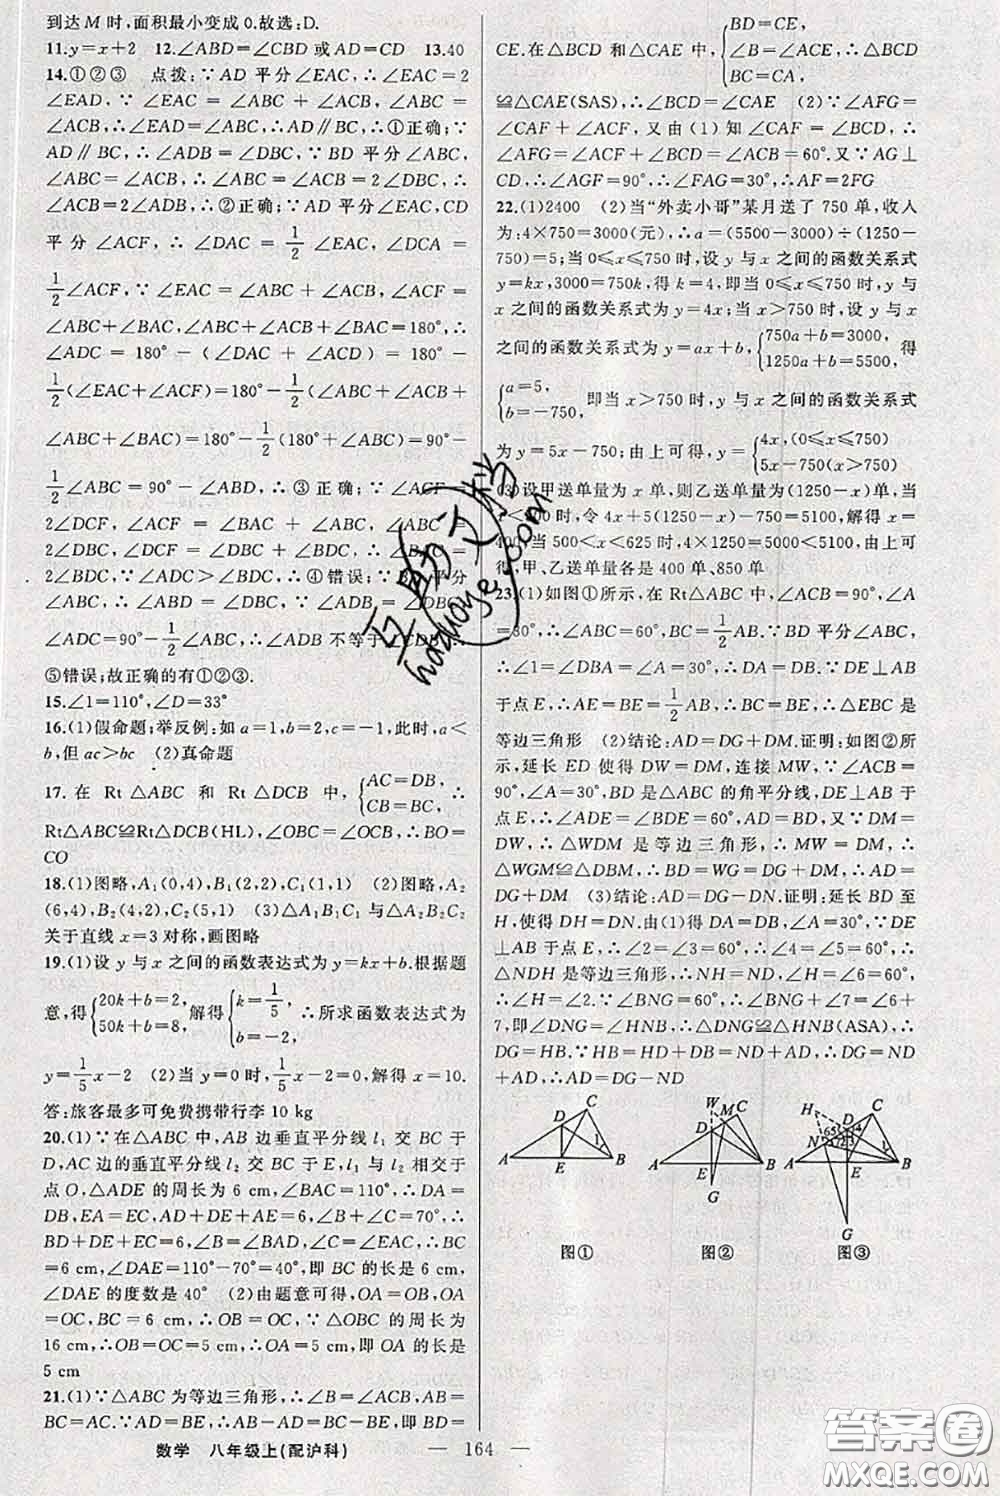 到达 M 时,面积最小变成 0.故选:D.
11.y=x+2　12.∠ABD=∠CBD 或 AD=CD　13.40
14.①②③　点拨:∵AD 平分∠EAC,∴∠EAC=2
∠EAD,∵∠EAC=∠ABC+∠ACB,∠ABC=
∠ACB,∴∠EAD=∠ABC,∴AD∥BC,∴①正确;∵
AD∥BC,∴∠ADB=∠DBC,∵BD 平分∠ABC,
∠ABC=∠ACB,∴∠ABC=∠ACB=2∠DBC,∴
∠ACB=2∠ADB,∴②正确;∵AD 平分∠EAC,CD
平分∠ACF,∴∠DAC=1/2∠EAC,∠DCA=
1/2∠ACF,∵∠EAC=∠ABC+∠ACB,∠ACF=
∠ABC+∠BAC,∠ABC+∠ACB+∠BAC=180°,∴
∠ADC=180°-(∠DAC+∠ACD)=180°-
1/2(∠EAC+∠ACF)=180°-1/2(∠ABC+∠ACB+
∠ABC+∠BAC)=180°-1/2(180°+∠ABC)=90°-
1/2∠ABC=90°-∠ABD,∴③正确;∵∠ACF=
2∠DCF,∠ACF=∠BAC+∠ABC,∠ABC=
2∠DBC,∠DCF=∠DBC+∠BDC,∴∠BAC=
2∠BDC,∵∠ADC>∠BDC,∴④错误;∵BD 平分
∠ABC,∴∠ABD=∠DBC,∵∠ADB=∠DBC,
∠ADC=90°-1/2∠ABC,∴∠ADB 不等于∠CDB,∴
⑤错误;故正确的有①②③.
15.∠1=110°,∠D=33°
16.(1)假命题;举反例:如 a=1,b=2,c=-1,此时,a<
b,但 ac>bc　(2)真命题
17.在 Rt△ABC 和 Rt△DCB 中,{AC=DB, CB=BC,∴
Rt△ABC≌Rt△DCB(HL),∠OBC=∠OCB,∴BO=
CO
18.(1)图略,A₁(0,4),B₁(2,2),C₁(1,1)　(2)图略,A₂
(6,4),B₂(4,2),C₂(5,1)　(3)△A₁B₁C₁ 与△A₂B₂C₂
关于直线 x=3 对称,画图略
19.(1)设 y 与 x 之间的函数表达式为 y=kx+b.根据题
意,得{20k+b=2, 50k+b=8,解得{k=1/5 b=-2,∴所求函数表达式为
y=1/5x-2　(2)当 y=0 时,1/5x-2=0,解得 x=10.
答:旅客最多可免费携带行李 10 kg
20.(1)∵在△ABC 中,AB 边垂直平分线 l₁ 交 BC 于
D,AC 边的垂直平分线 l₂ 交 BC 于 E,l₁ 与 l₂ 相交于
点 O,△ADE 的周长为 6 cm,∠BAC=110°,∴DA=
DB,EA=EC,AD+DE+AE=6,∠B+∠C=70°,∴
BD+DE+EC=6,∠B=∠BAD,∠C=∠EAC,∴BC
=6 cm,∠DAE=110°-70°=40°,即 BC 的长是 6 cm,
∠DAE 的度数是 40°　(2)由题意可得,OA=OB,OA
=OC,BC=6 cm,∴OB=OC,∵△OBC 的周长为
16 cm,∴OB=OC=5 cm,∴OA=5 cm,即 OA 的长是
5 cm
21.(1)∵△ABC 为等边三角形,∴∠B=∠ACB,AB=
BC=AC.∵AD=BE,∴AB-AD=BC-BE,即 BD=
CE.在△BCD 和△CAE 中,{BD=CE, ∠B=∠ACE, BC=CA,∴△BCD
≌△CAE(SAS),∴∠BCD=∠CAE　(2)∵∠AFG=
∠CAF+∠ACF,又由(1)知∠CAF=∠BCD,∴
∠AFG=∠ACF+∠BCD=∠ACB=60°.又∵AG⊥
CD,∴∠AGF=90°,∴∠FAG=30°,∴AF=2FG
22.(1)2400　(2)当“外卖小哥”某月送了 750 单,收入
为:4×750=3000(元),∴a=(5500-3000)÷(1250-
750)=5;当 0≤x≤750 时,设 y 与 x 之间的函数关系式
y=kx,3000=750k,得 k=4,即当 0≤x≤750 时,y 与
x 之间的函数关系式为 y=4x;当 x>750 时,设 y 与 x
之间的函数关系式为 y=ax+b,{750a+b=3000, 1250a+b=5500,得
{a=5, b=-750,即当 x>750 时,y 与 x 之间的函数关系式
为 y=5x-750;由上可得,y={4x,(0≤x≤750) 5x-750(x>750)
(3)设甲送单量为 x 单,则乙送单量为(1250-x)单,当
x<500 时,令 4x+5(1250-x)-750=5100,解得 x=
400,当 500<x<625 时,4×1250=5000<5100,由上可
得,甲、乙送单量各是 400 单、850 单
23.(1)如图①所示,在 Rt△ABC 中,∠ACB=90°,∠A
=30°,∴∠ABC=60°,BC=1/2AB.∵BD 平分∠ABC,
∴∠1=∠DBA=∠A=30°,∴DA=DB.∵DE⊥AB
于点 E,∴AE=BE=1/2AB,∴BC=BE,∴△EBC 是
等边三角形　(2)结论:AD=DG+DM.证明:如图②所
示,延长 ED 使得 DW=DM,连接 MW,∵∠ACB=
90°,∠A=30°,BD 是△ABC 的角平分线,DE⊥AB 于
点 E,∴∠ADE=∠BDE=60°,AD=BD,又∵DM=
DW,∴△WDM 是等边三角形,∴MW=DM,∴
△WGM≌△DBM,∴BD=WG=DG+DM,∴AD=
DG+DM　(3)结论:AD=DG-DN.证明:延长 BD 至
H,使得 DH=DN.由(1)得 DA=DB,∠A=30°,∵DE
⊥AB 于点 E,∴∠2=∠3=60°,∴∠4=∠5=60°,∴
△NDH 是等边三角形,∴NH=ND,∠H=∠6=60°,
∴∠H=∠2.∵∠BNG=60°,∴∠BNG+∠7=∠6+∠
7,即∠DNG=∠HNB,∴△DNG≌△HNB(ASA),∴
DG=HB.∵HB=HD+DB=ND+AD,∴DG=ND
+AD,∴AD=DG-ND
A B C D E 1
图①
A B C D E G M W
图②
A B C D E G H N
图③
数学　八年级上(配沪科)
— 164 —
hadhaoye.com
答案圈
MXQE.COM